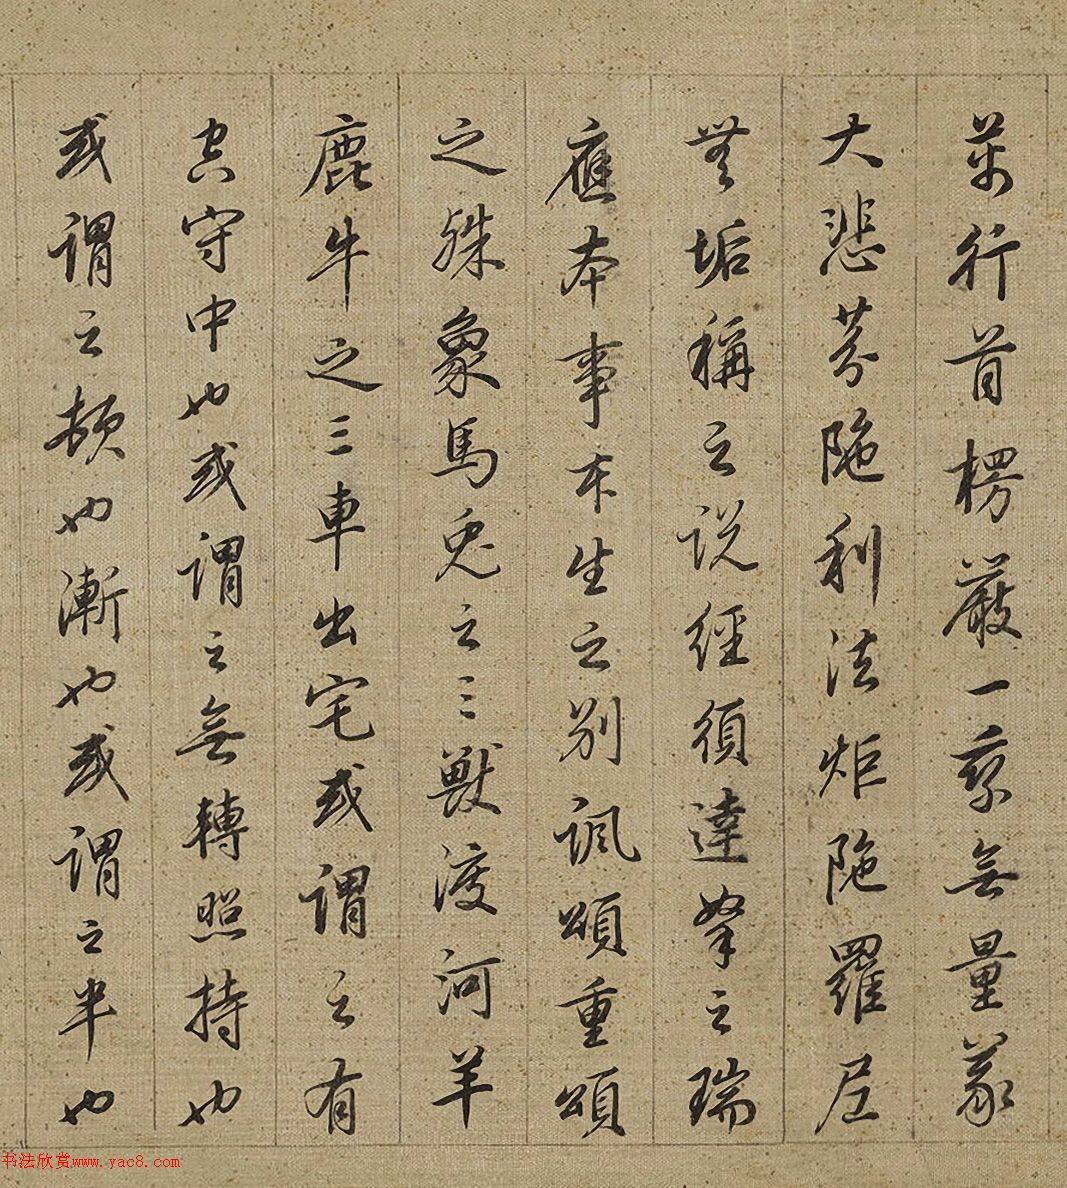 萬行首楞嚴一乘無量義
大悲芬陁利法炬陁羅尼
無垢稱之説經須達拏之瑞
應本事本生之別諷頌重頌
之殊象馬兔之三獸渡河羊
鹿牛之三車出宅或謂之有
空守中也或謂之無轉照持也
或謂之頓也漸也或謂之半也
书法欣赏www.yac8.com